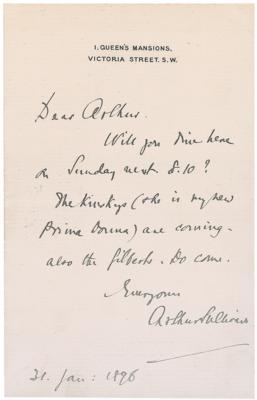 1, QUEEN'S MANSIONS,
VICTORIA STREET. S.W.
Dear Arthur.
Will you dine here
on Sunday next 8.10?
The Kinskys (she is my new
Prima Donna) are coming -
also the Gilberts. Do come.
Ever yours
Arthur Sullivan
31. Jan: 1896